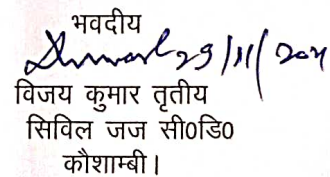 भवदीय
29/11/201
विजय कुमार तृतीय
सिविल जज सी0डि0
कौशाम्बी।